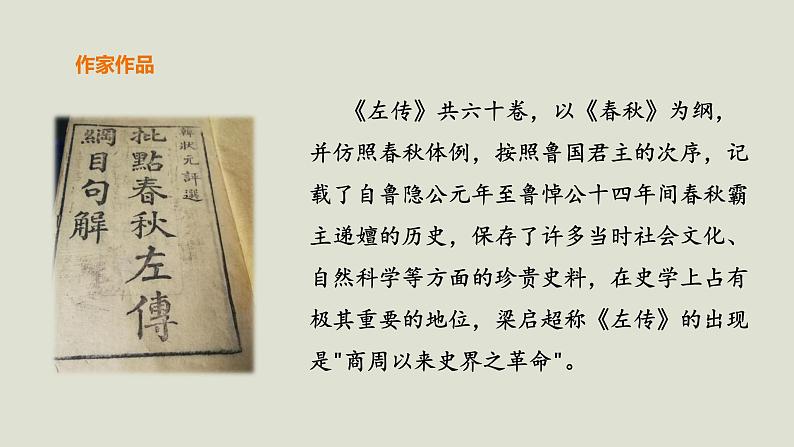 作家作品
《左传》共六十卷，以《春秋》为纲，
并仿照春秋体例，按照鲁国君主的次序，记
载了自鲁隐公元年至鲁悼公十四年间春秋霸
主递嬗的历史，保存了许多当时社会文化、
自然科学等方面的珍贵史料，在史学上占有
极其重要的地位，梁启超称《左传》的出现
是"商周以来史界之革命"。
韓狀元評選
批點春秋左傳
綱目句解